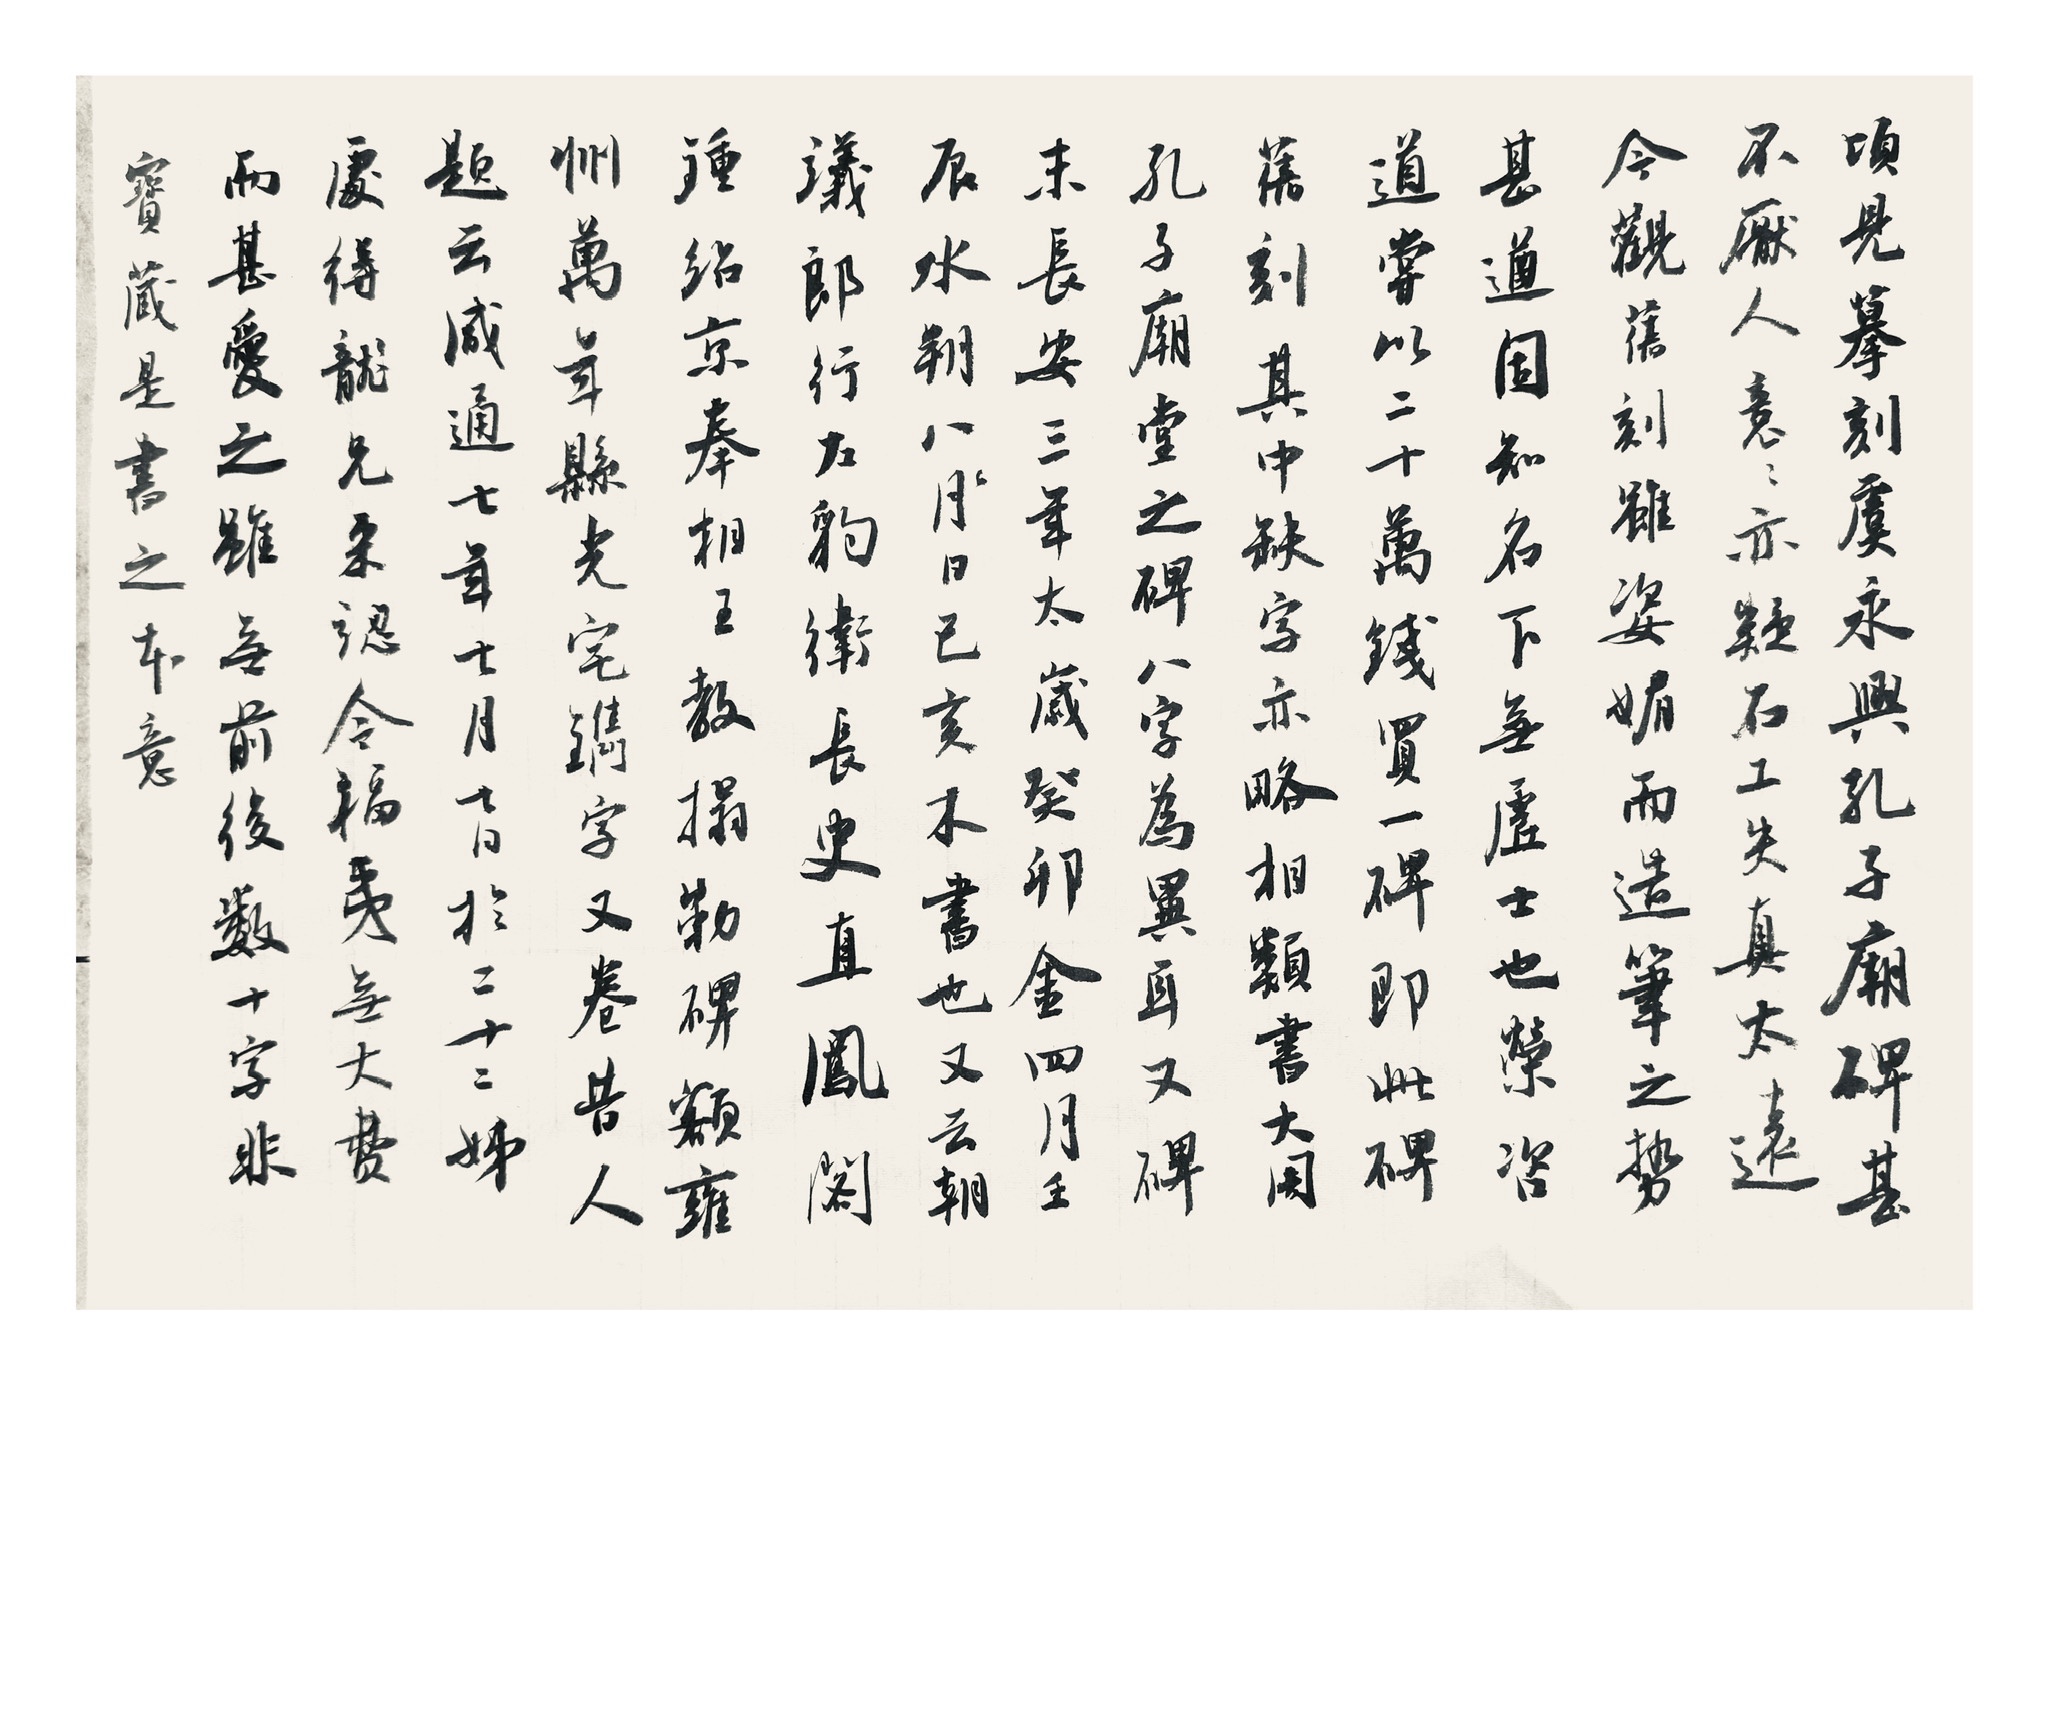 頃見摹刻虞永興孔子廟碑甚
不厭人意意亦疑石工失真太遠
今觀舊刻雖姿媚而造筆之勢
甚遒固知名下無虛士也榮咨
道嘗以二十萬錢買一碑即此碑
舊刻其中缺字亦略相類書大周
孔子廟堂之碑八字為異耳又碑
末長安三年太歲癸卯金四月壬
辰水朔八月日己亥木書也又云朝
議郎行左豹衛長史直鳳閣
鍾紹京奉相王教搨勒碑額雍
州萬年縣光宅鐫字又卷昔人
題云咸通七年七月十日於二十二姊
處得龍兄柔認令輻夷無大費
而甚愛之雖無前後數十字非
寶藏是書之本意